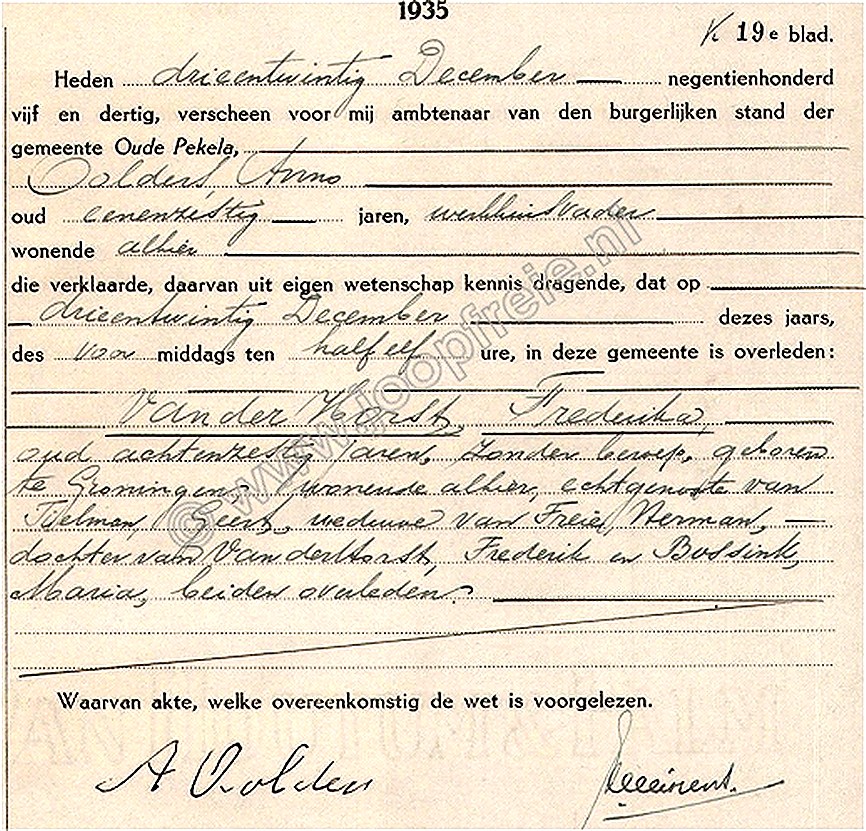 1935
K 19e blad.
Heden drieentwintig December negentienhonderd
vijf en dertig, verscheen voor mij ambtenaar van den burgerlijken stand der
gemeente Oude Pekela,
Oolders, Anno
oud eenenzestig jaren, werkhuisvader
wonende alhier
die verklaarde, daarvan uit eigen wetenschap kennis dragende, dat op
drieentwintig December dezes jaars,
des voor middags ten half elf ure, in deze gemeente is overleden:
Van der Horst, Frederika,
oud achtenzestig jaren, zonder beroep, geboren
te Groningen, wonende alhier, echtgenoote van
Tielman, Geert, weduwe van Freie, Herman,
dochter van Van der Horst, Frederik en Bossink,
Maria, beiden overleden.
Waarvan akte, welke overeenkomstig de wet is voorgelezen.
A Oolders
© www.loopfreie.nl